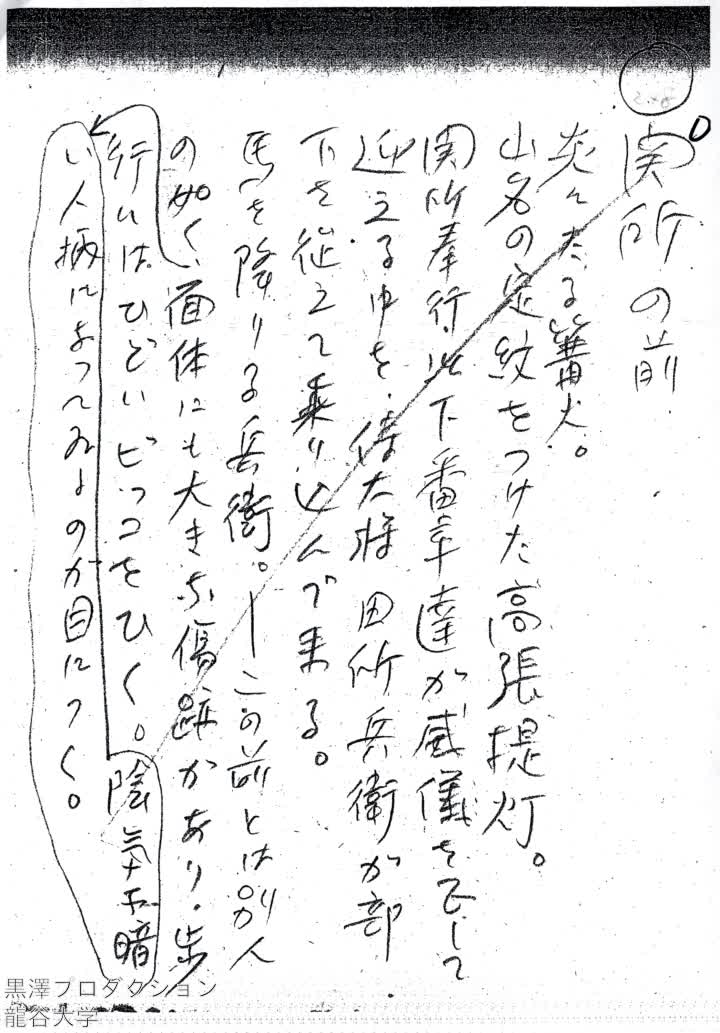 関所の前
炎々たる篝火。
山名の定紋をつけた高張提灯。
関所奉行以下番卒達が威儀を正して
迎える中を、侍大将田所兵衛が部
下を従えて乗り込んで来る。
馬を降りる兵衛。—この前とは別人
の如く、面体にも大きな傷跡があり、歩
行にはひどいビッコをひく。陰気な暗
い人柄になつてゐるのが目につく。
黒澤プロダクション
龍谷大学